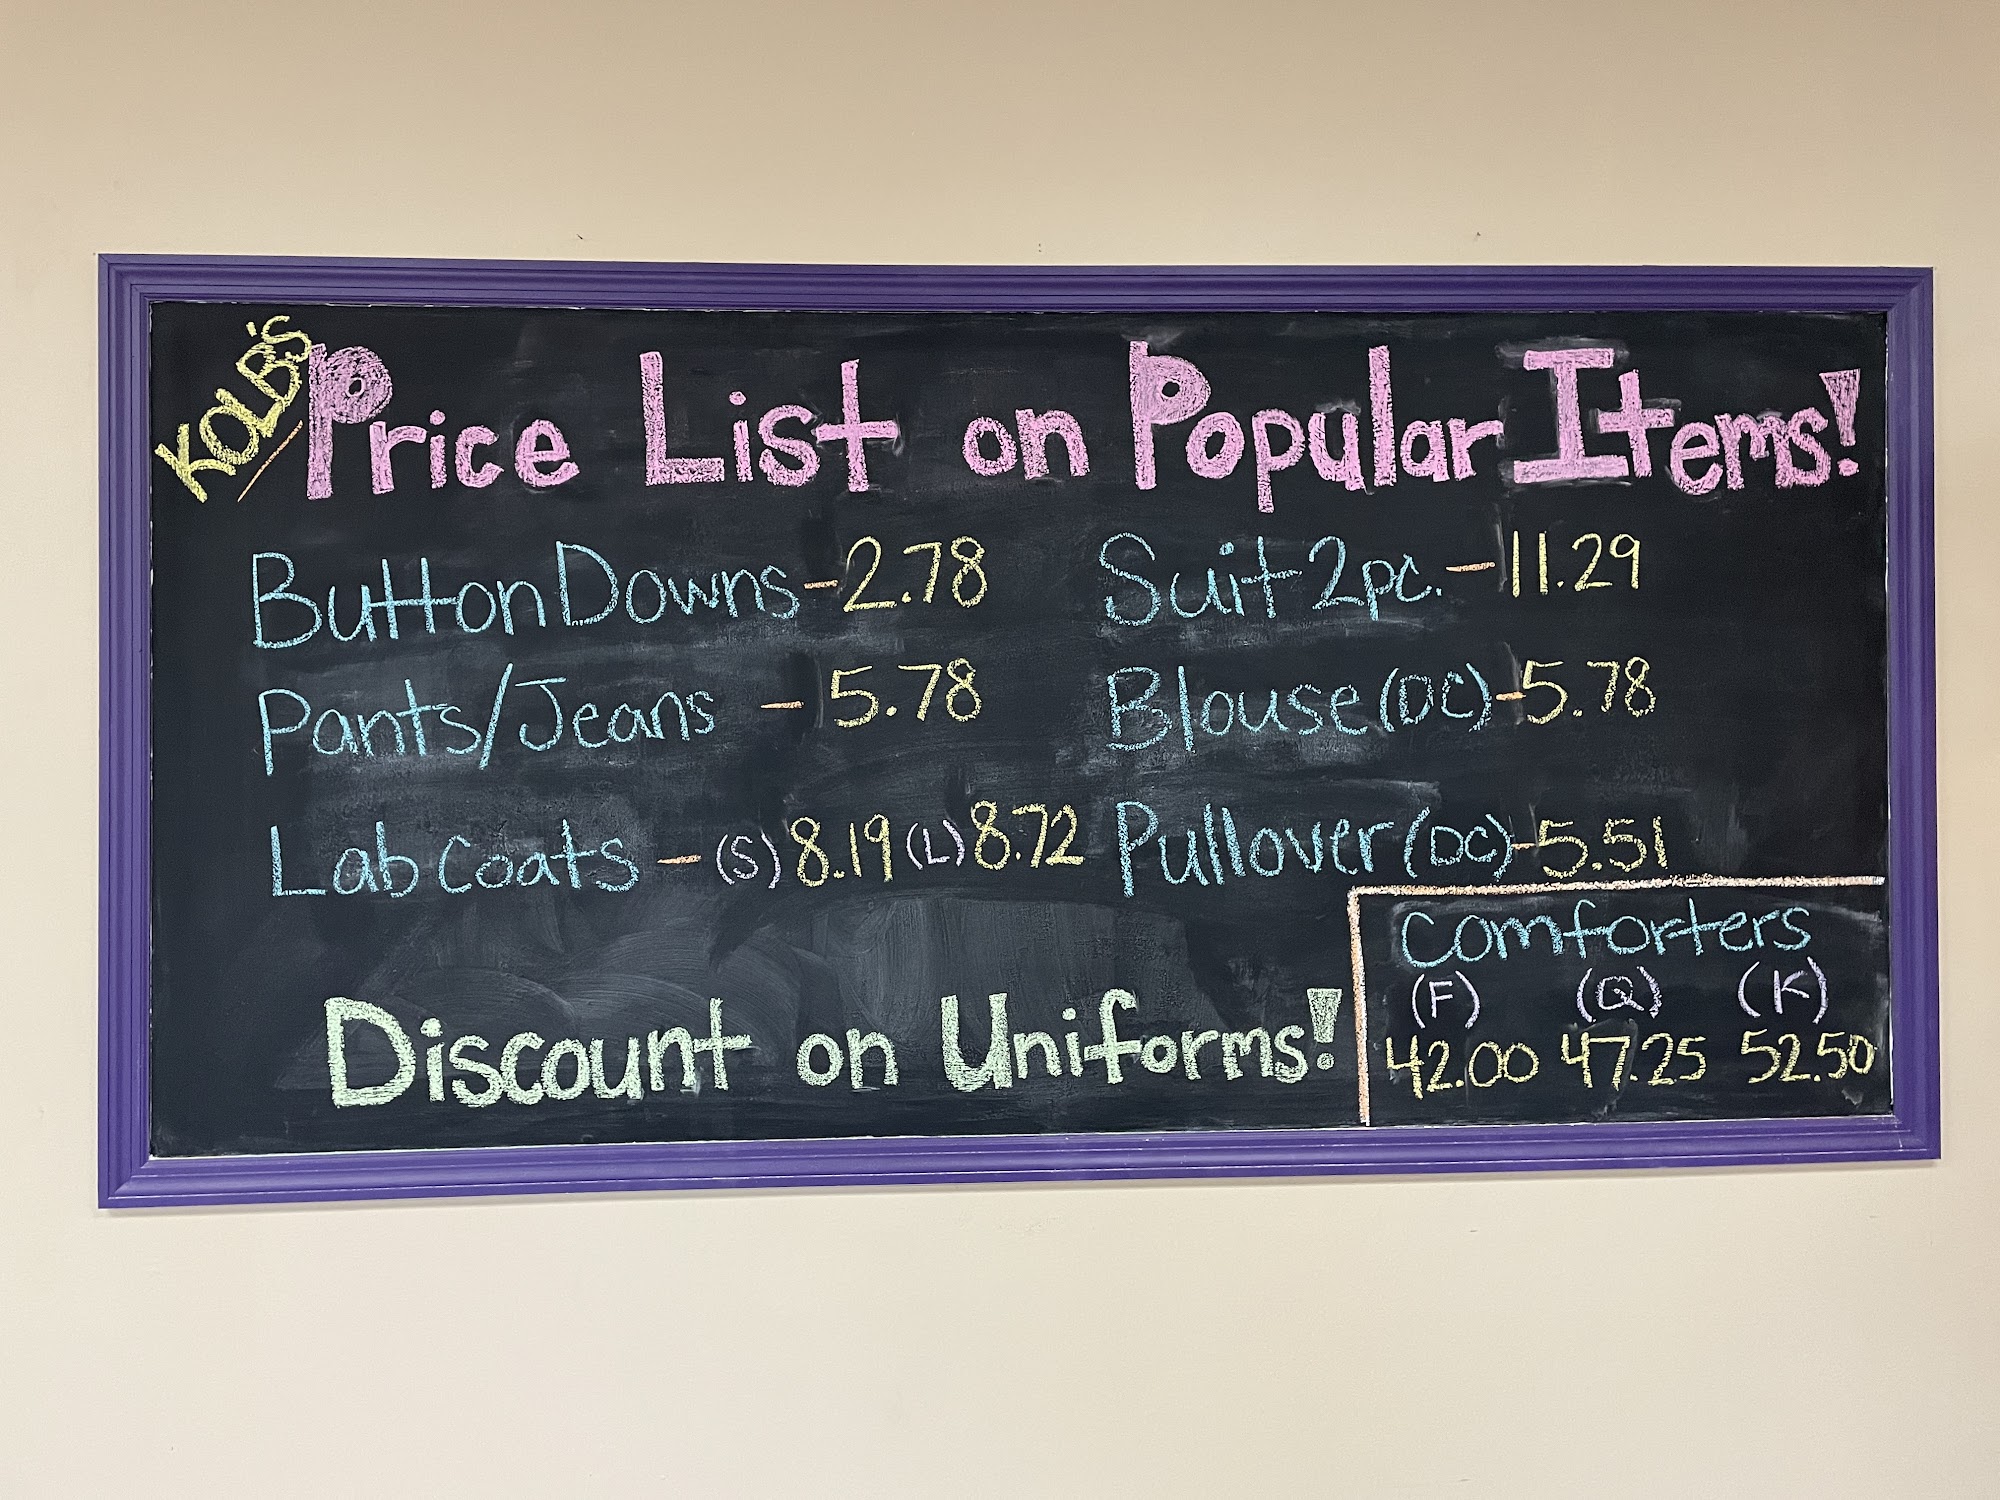 KOLB'S
Price List on Popular Items!
Button Downs - 2.78
Suit 2pc. - 11.29
Pants/Jeans - 5.78
Blouse (DC) - 5.78
Lab Coats - (S) 8.19 (L) 8.72
Pullover (DC) - 5.51
Comforters
(F) (Q) (K)
42.00 47.25 52.50
Discount on Uniforms!